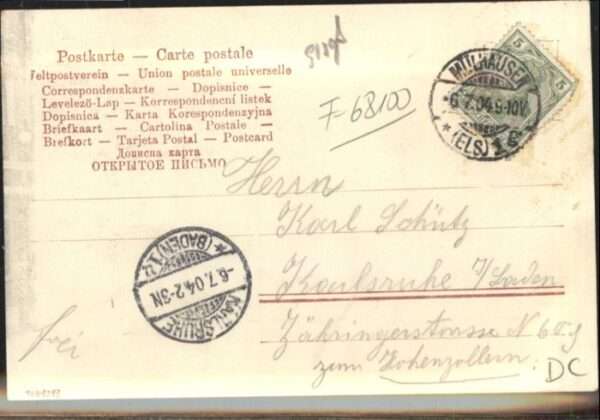 Postkarte — Carte postale
Weltpostverein — Union postale universelle
Correspondenzkarte — Dopisnice —
Levelező-Lap — Korrespondencní listek
Dopisnica — Karta Korespondenzyjna
Briefkaart — Cartolina Postale —
Brefkort — Tarjeta Postal — Postcard
Дописна карта
ОТКРЫТОЕ ПИСЬМО
F-68100
5
5
MÜLHAUSEN
6.7.04.9-10V.
(ELS) 1 c
Herrn
Karl Schütz
Karlsruhe i/Baden
Zähringerstrasse N
zum Hohenzollern.
KARLSRUHE
-6.7.04.2-3N
(BADEN)
frei
DC